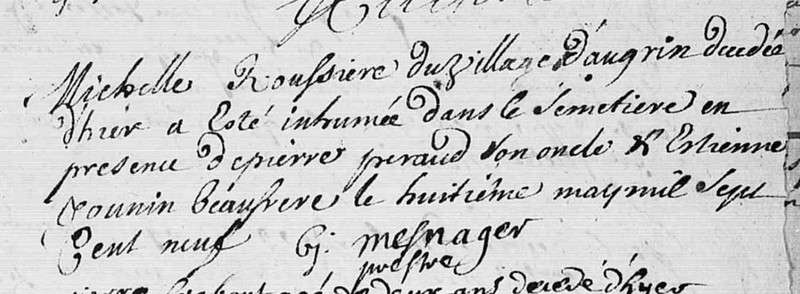 Michelle Roussiere du village d'augrin decedée
d'hier a esté inhumée dans le semetiere en
presence de pierre peraud son oncle & Estienne
beaufrere le huitiême may mil sept
cent neuf bj. mesnager
prestre
de deux ans decedé d'hyer